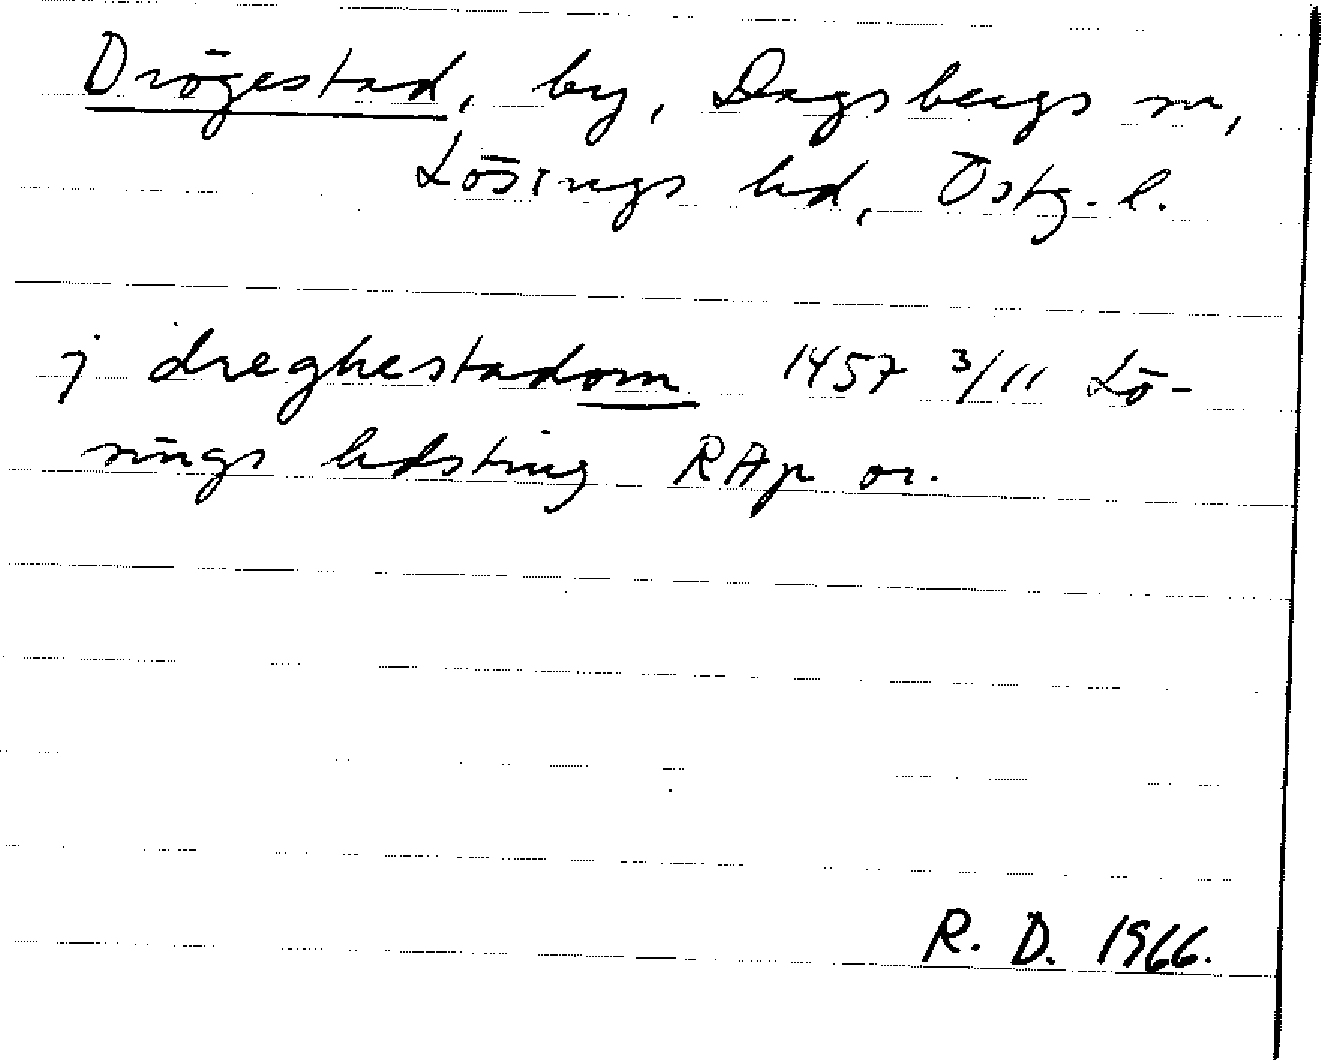 Drögestad, by, Dagsbergs sn,
Lösings hd, Östg. l.
j dreghestadom 1457 3/11 Lö-
sings hdsting RAp or.
R. D. 1966.